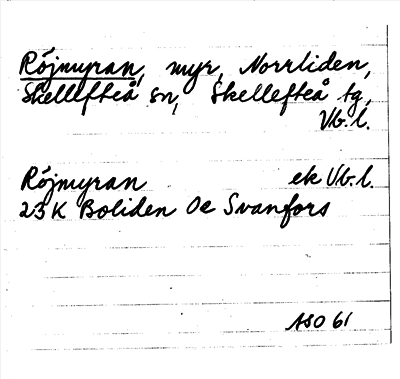 Röjmyran, myr, Norrliden,
Skellefteå sn, Skellefteå tg,
Vb. l.
Röjmyran ek Vb. l.
23 K Boliden Oc Svanfors
ASO 61